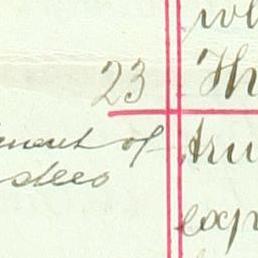 wh
23 Th
ment of tru
dees exp